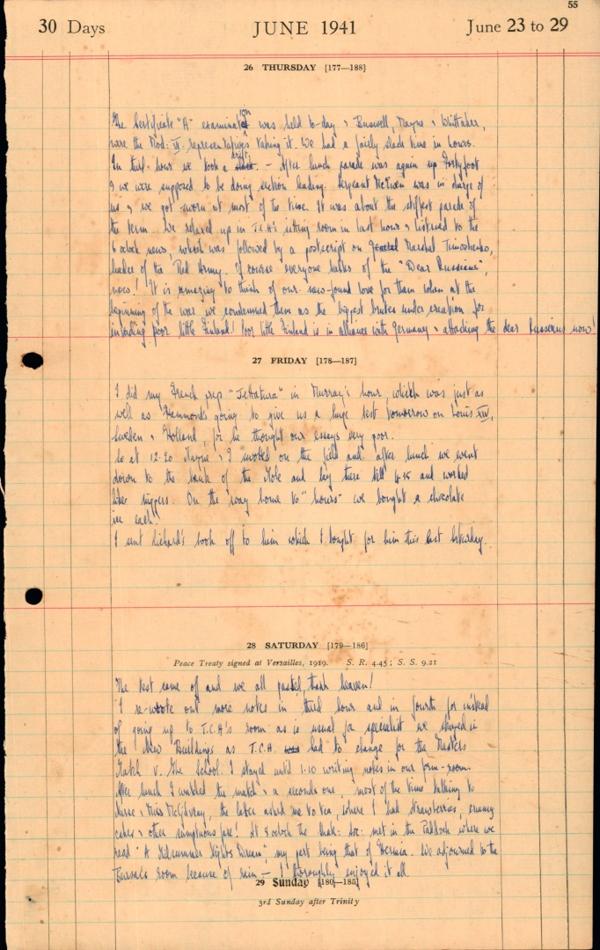 55
30 Days JUNE 1941 June 23 to 29
26 THURSDAY [177—188]
The Certificate "A" examination was held to-day & Buswell, Mayne & Whittaker,
were the Mod: VI representatives taking it. We had a fairly slack time in hours.
In third hour we took a . – After lunch parade was again up Fortyfoot
& we were supposed to be doing section leading. Sergeant was in charge of
us & we got sworn at most of the time. It was about the stiffest parade of
the term. We relaxed up in T.C.H's sitting room in last hour & listened to the
6 oclock news, which was followed by a postscript on General Marshal Timoshenko,
leader of the Red Army. Of course everyone talks of the "Dear Russians",
now! It is amazing to think of our new-found love for them when at the
beginning of the war we condemned them as the biggest brutes under creation for
invading poor little Finland! Poor little Finland is in alliance with Germany & attacking the dear Russians now!
27 FRIDAY [178—187]
I did my French prep "Jettatura" in Murray's hour, which was just as
well as Hammond's going to give us a huge test tomorrow on Louis XIV,
Sweden & Holland, for he thought our essays very poor.
So at 12.20 Mayne & I on the field and after lunch we went
down to the bank of the Mole and lay there till 4.15 and worked
like niggers. On the way home to "hours" we bought a chocolate
ice each.
I sent Richard's book off to him which I bought for him this last Saturday.
28 SATURDAY [179—186]
Peace Treaty signed at Versailles, 1919. S. R. 4.45; S. S. 9.21
The test came of and we all passed, thank heaven!
I re-wrote out more notes in third hour and in fourth for instead
of going up to T.C.H's room as is usual for specialist we stayed in
the New Buildings as T.C.H. had to change for the Masters
Match v. the School. I stayed until 1.10 writing notes in our form-room.
After lunch I watched the match & a seconds one, most of the time talking to
& Miss McGilvray, the later asked me to tea, where I had strawberries, creamy
cakes & other sumptuous fare! At 8 oclock the Shak: Soc: met in the Paddock where we
read "A Midsummer Nights Dream" my part being that of Hermia. We adjourned to the
room because of rain – I thoroughly enjoyed it all
29 Sunday [180—185]
3rd Sunday after Trinity